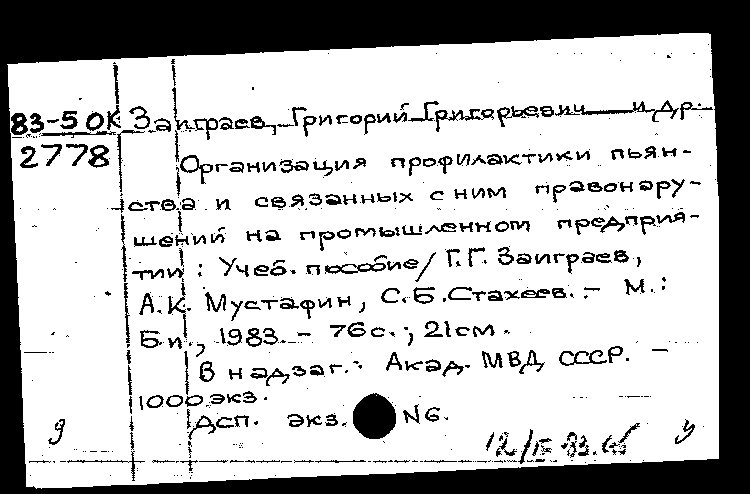 83-5 ОК Заиграев, Григорий Григорьевич и др.
2778 Организация профилактики пьян-
ства и связанных с ним правонару-
шений на промышленном предприя-
тии : Учеб. пособие / Г.Г. Заиграев,
А.К. Мустафин, С.Б. Стахеев. - М. :
Б.и., 1983. - 76 с. ; 21 см.
В надзаг.: Акад. МВД СССР. -
1000 экз.
ДСП. экз. N6.
д у